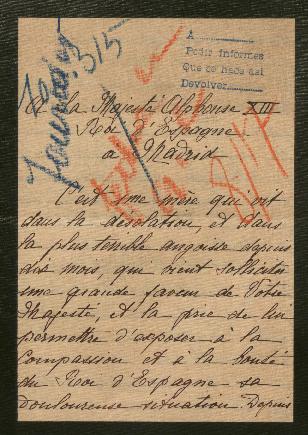 A
Pedir informes
Que se hace así
Devolver
315
A Sa Majesté Alphonse XIII
Roi d'Espagne
a Madrid
C'est une mère qui vit
dans la désolation, et dans
la plus terrible angoisse depuis
dix mois, qui vient solliciter
une grande faveur de Votre
Majesté, et la prie de lui
permettre d'exposer à la
Compassion et à la bonté
du Roi d'Espagne sa
douloureuse situation. Depuis